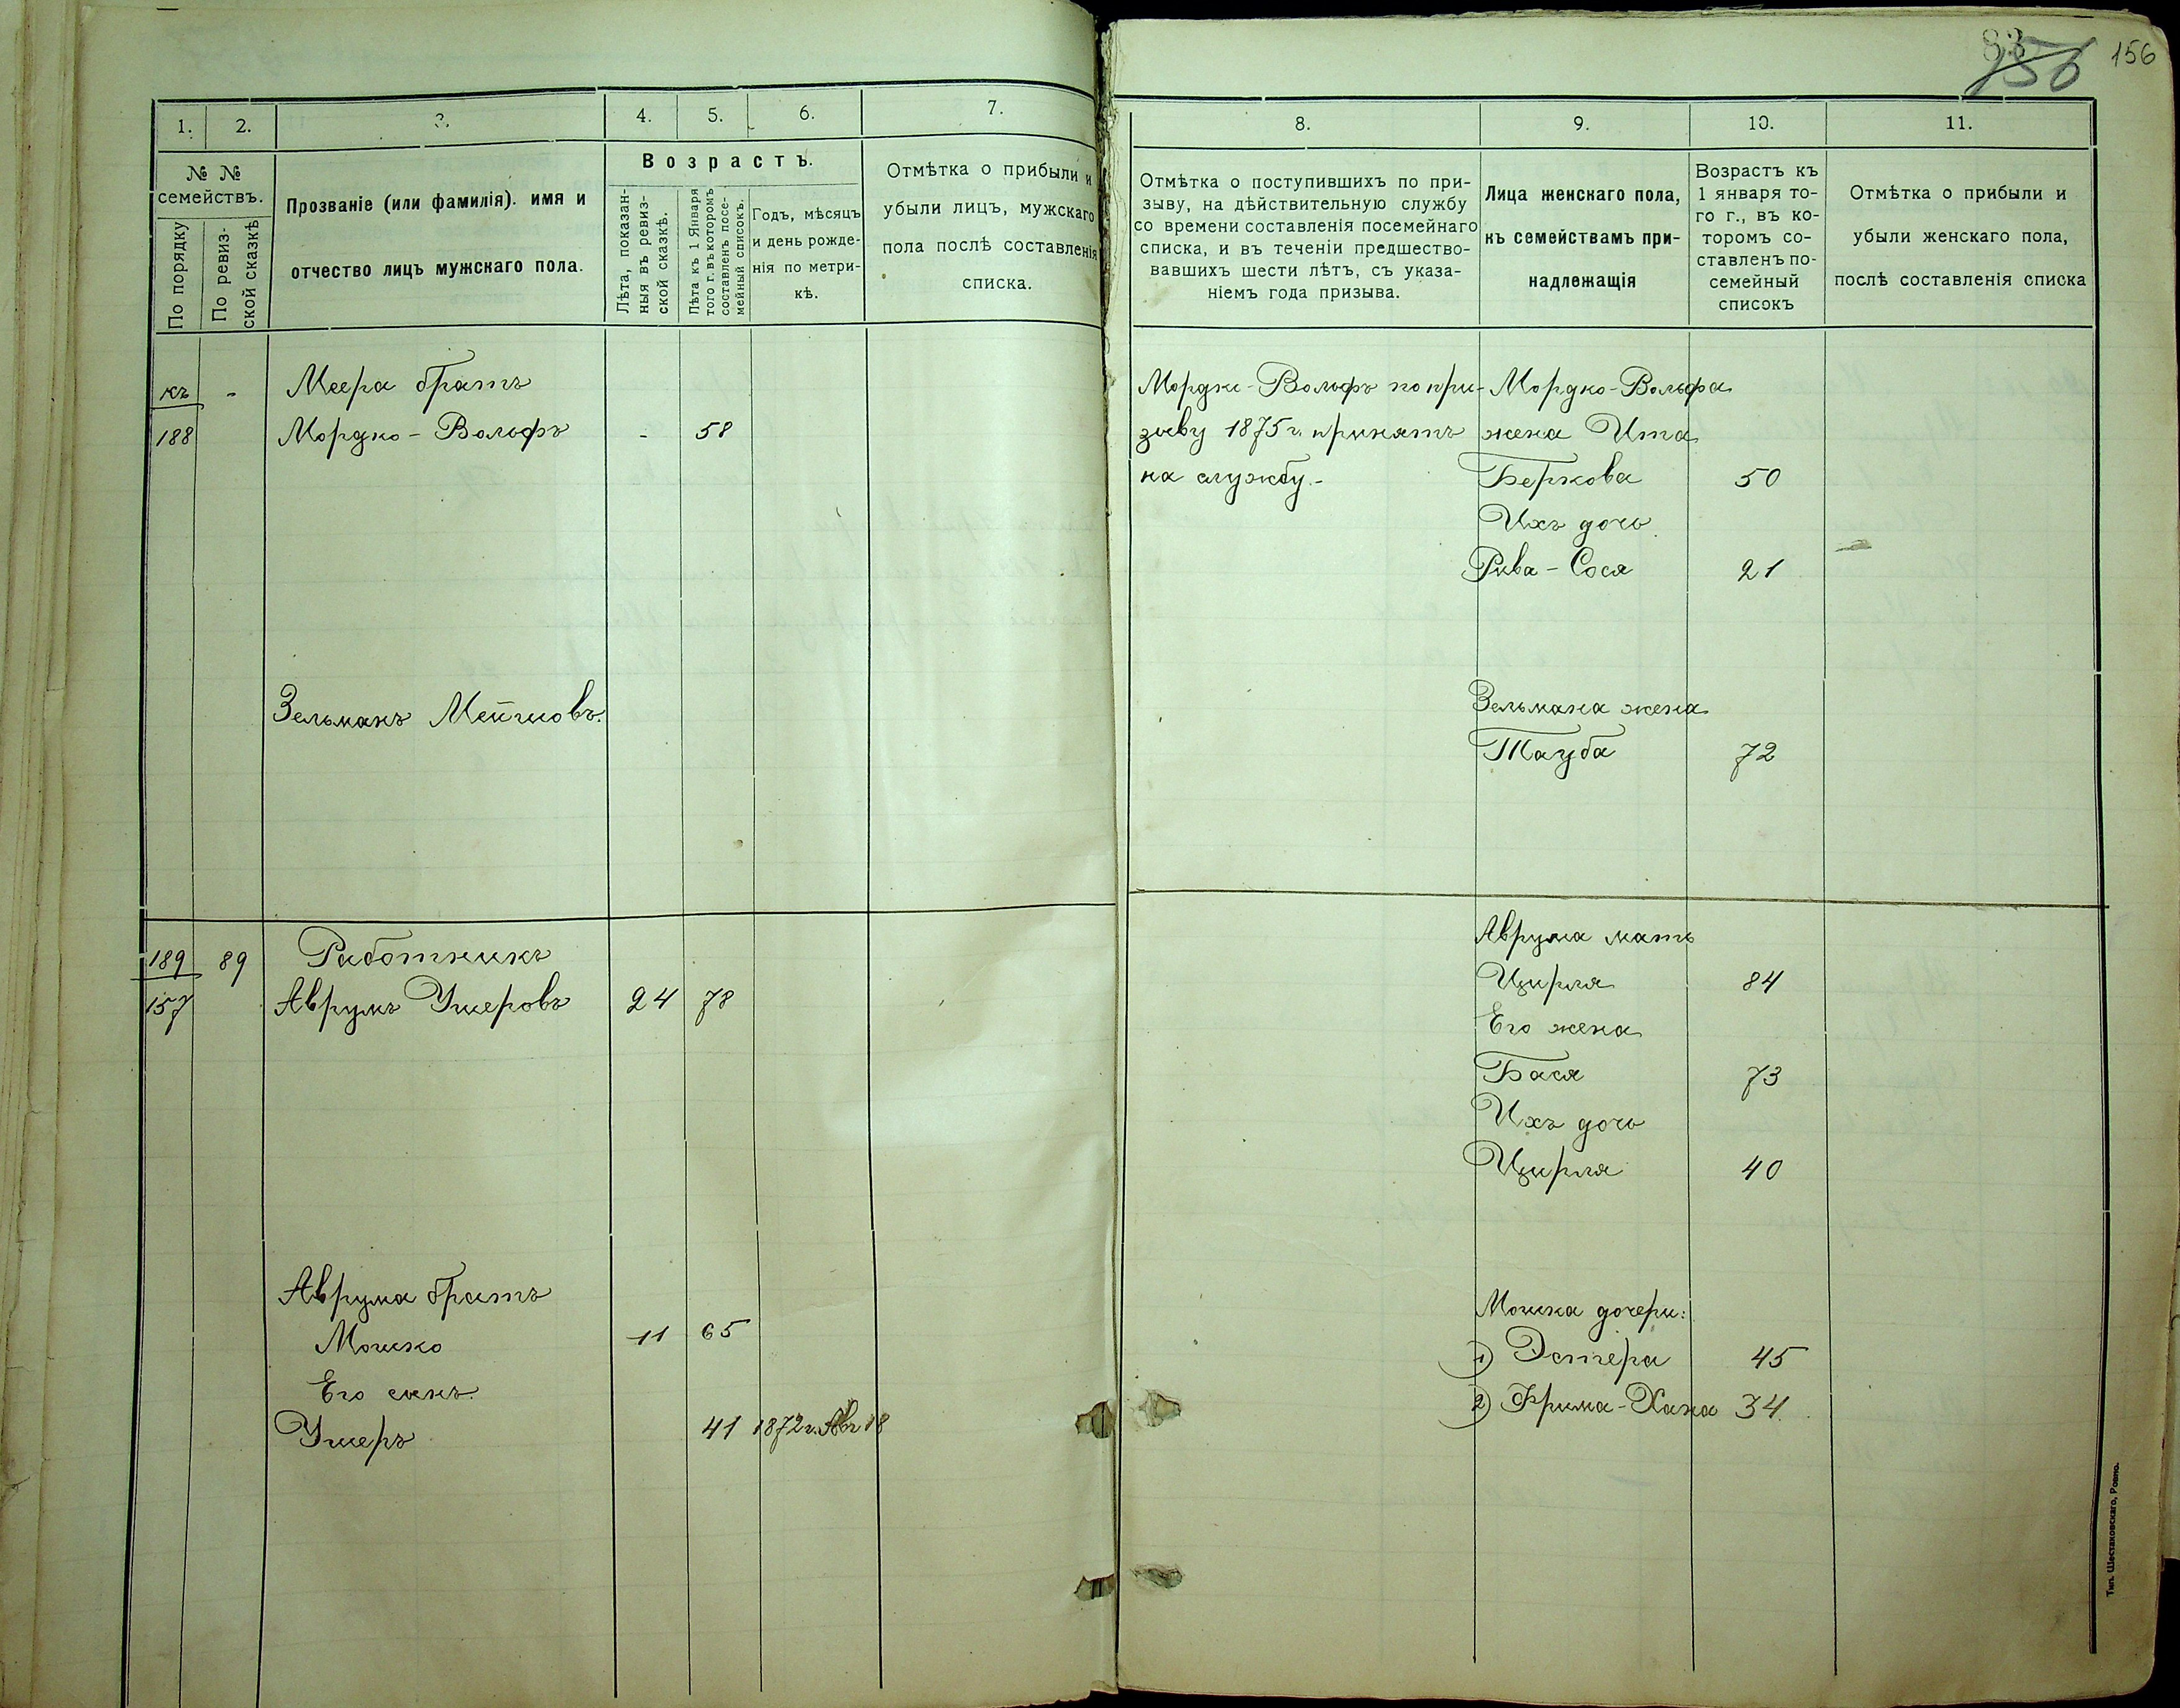 83
156
156
1.
2.
3.
4.
5.
6.
7.
№ №
семействъ.
По порядку
По ревиз-
ской сказкѣ
Прозваніе (или фамилія). имя и
отчество лицъ мужскаго пола.
Возрастъ.
Лѣта, показан-
ныя въ ревиз-
ской сказкѣ.
Лѣта къ 1 Января
того г. въ которомъ
составленъ посе-
мейный списокъ.
Годъ, мѣсяцъ
и день рожде-
нія по метри-
кѣ.
Отмѣтка о прибыли и
убыли лицъ, мужскаго
пола послѣ составленія
списка.
къ - Меера братъ
188 Мордко-Вольфъ - 58
Зельманъ
189 89 Работникъ
157 Аврумъ Ушеровъ 24 78
Аврума братъ
Мошко 11 65
Его сынъ
Ушеръ 41 1872 г. Авг 18
8.
9.
10.
11.
Отмѣтка о поступившихъ по при-
зыву, на дѣйствительную службу
со времени составленія посемейнаго
списка, и въ теченіи предшество-
вавшихъ шести лѣтъ, съ указа-
ніемъ года призыва.
Лица женскаго пола,
къ семействамъ при-
надлежащія
Возрастъ къ
1 января то-
го г., въ ко-
торомъ со-
ставленъ по-
семейный
списокъ
Отмѣтка о прибыли и
убыли женскаго пола,
послѣ составленія списка
Мордко-Вольфъ по при-
зыву 1875 г. принятъ
на службу.-
Мордко-Вольфа
жена Ита
Беркова 50
Ихъ дочь
Рива-Сося 21
Зельмана жена
Тауба 72
Аврума мать
Цирля 84
Его жена
Бася 73
Ихъ дочь
Цирля 40
Мошка дочери:
1) Эстера 45
2) Фрима-Хана 34.
Тип. Шестаковскаго, Ровно.